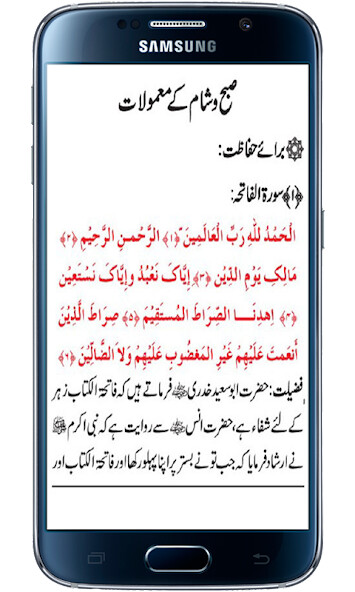 SAMSUNG
صبح و شام کے معمولات
برائے حفاظت:
﴿۱﴾ سورۃ الفاتحہ:
الْحَمْدُ للهِ رَبِّ الْعَالَمِينَ ﴿۱﴾ الرَّحْمنِ الرَّحِيْمِ ﴿۲﴾
مَالِكِ يَوْمِ الدِّيْنِ ﴿۳﴾ إِيَّاكَ نَعْبُدُ وإِيَّاكَ نَسْتَعِيْنُ
﴿۴﴾ اِهدِنَــا الصِّرَاطَ المُستَقِيْمَ ﴿۵﴾ صِرَاطَ الَّذِيْنَ
أَنعَمتَ عَلَيْهِمْ غَيْرِ المَغضُوبِ عَلَيْهِمْ وَلاَ الضَّالِّيْنَ ﴿۶﴾
فضیلت: حضرت ابو سعید خدری فرماتے ہیں کہ فاتحۃ الکتاب زہر
کے لئے شفاء ہے، حضرت انس سے روایت ہے کہ نبی اکرم ﷺ
نے ارشاد فرمایا کہ جب تو نے بستر پر اپنا پہلو رکھا اور فاتحۃ الکتاب اور